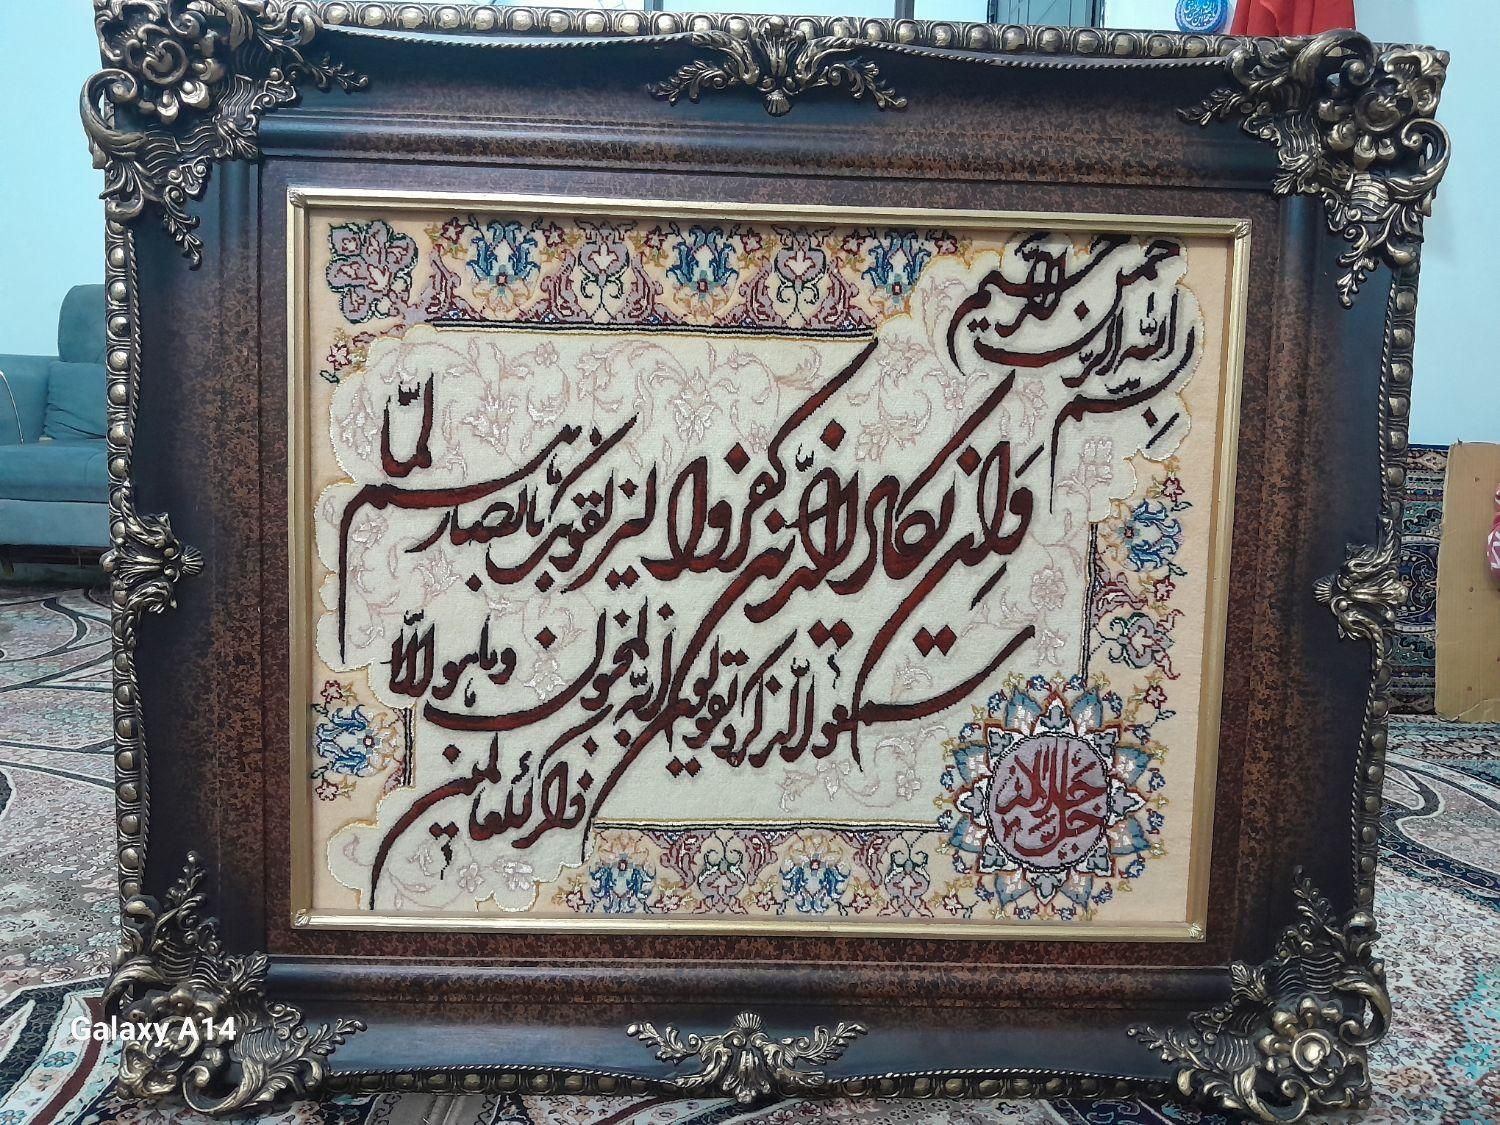 بسم الله الرحمن الرحیم
وَإِن یکاد الذین کفروا لیزلقونک بابصارهم لمّا
سمعوا الذکر و یقولون انه لمجنون وما هو الا
ذکر للعالمین
جل جلاله
Galaxy A14